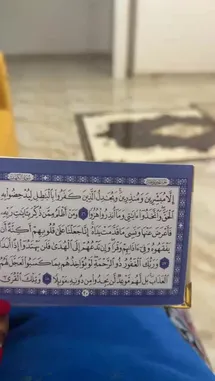 إِلَّا مُبَشِّرِينَ وَمُنذِرِينَ وَيُجَٰدِلُ ٱلَّذِينَ كَفَرُوا۟ بِٱلْبَٰطِلِ لِيُدْحِضُوا۟ بِهِ
ٱلْحَقَّ وَٱتَّخَذُوٓا۟ ءَايَٰتِى وَمَآ أُنذِرُوا۟ هُزُوًا ٥٦ وَمَنْ أَظْلَمُ مِمَّن ذُكِّرَ بِـَٔايَٰتِ رَبِّهِۦ
فَأَعْرَضَ عَنْهَا وَنَسِىَ مَا قَدَّمَتْ يَدَاهُ إِنَّا جَعَلْنَا عَلَىٰ قُلُوبِهِمْ أَكِنَّةً أَن
يَفْقَهُوهُ وَفِىٓ ءَاذَانِهِمْ وَقْرًا وَإِن تَدْعُهُمْ إِلَى ٱلْهُدَىٰ فَلَن يَهْتَدُوٓا۟ إِذًا أَبَدًا
٥٧ وَرَبُّكَ ٱلْغَفُورُ ذُو ٱلرَّحْمَةِ لَوْ يُؤَاخِذُهُم بِمَا كَسَبُوا۟ لَعَجَّلَ لَهُمُ
ٱلْعَذَابَ بَل لَّهُم مَّوْعِدٌ لَّن يَجِدُوا۟ مِن دُونِهِۦ مَوْئِلًا ٥٨ وَتِلْكَ ٱلْقُرَىٰٓ